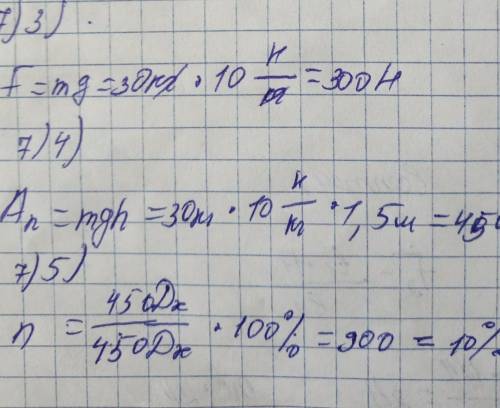 7)3)
F = mg = 30кг · 10 Н/кг = 300Н
7)4)
Aп = mgh = 30кг · 10 Н/кг · 1,5м = 450
7)5)
n = 450Дж/450Дж · 100% = 900 = 10%